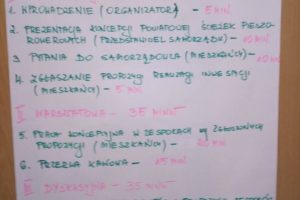 1. WPROWADZENIE (ORGANIZATOR) - 5 MIN
2. PREZENTACJA KONCEPCJI POWIATOWEJ ŚCIEŻEK PIESZO-
ROWEROWYCH (PRZEDSTAWICIEL SAMORZĄDU) - 10 MIN
3. PYTANIA DO SAMORZĄDOWCA (MIESZKAŃCY) - 10 MIN
4. ZGŁASZANIE PROPOZYCJI REALIZACJI INWESTYCJI
(MIESZKAŃCY) - 5 MIN
II WARSZTATOWA - 35 MINUT
5. PRACA KONCEPCYJNA W ZESPOŁACH wg ZGŁOSZONYCH
PROPOZYCJI (MIESZKAŃCY) - 20 MIN
6. PRZERWA KAWOWA - 15 MIN
III DYSKUSYJNA - 35 MINUT